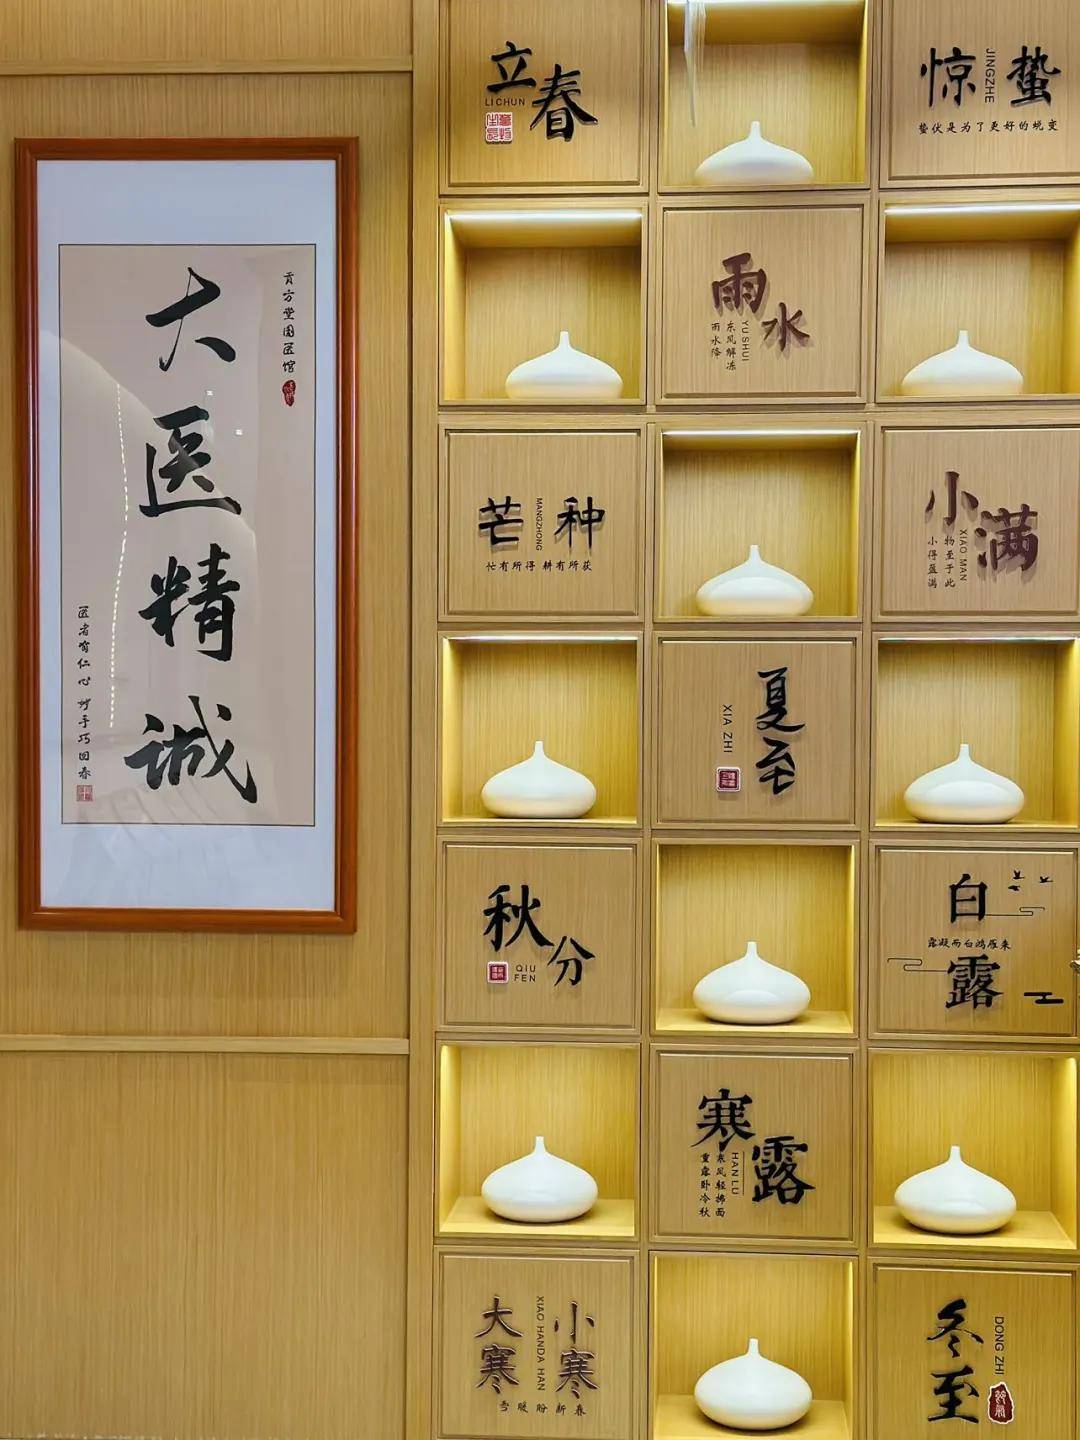 贡方堂国医馆
大医精诚
医者有仁心 妙手巧回春
立春
LI CHUN
惊蛰
JINGZHE
蛰伏是为了更好的蜕变
雨水
YU SHUI
东风解冻
雨水降
芒种
MANGZHONG
忙有所得 耕有所获
小满
XIAO MAN
物至于此
小得盈满
夏至
XIA ZHI
秋分
QIU
FEN
白露
露凝而白鸿雁来
寒露
HAN LU
东风轻拂面
重露卧冷秋
小寒
XIAO HANDA HAN
大寒
雪暖盼新春
冬至
DONG ZHI